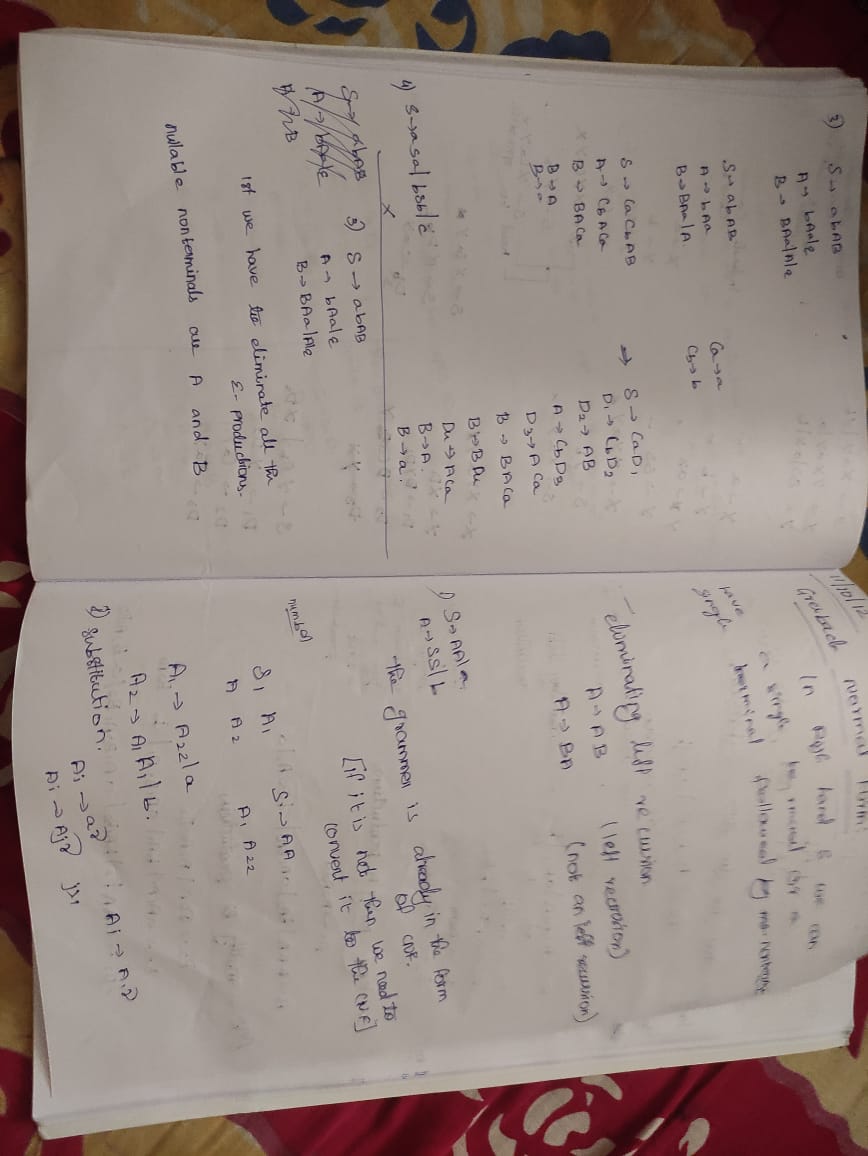 3) S → abAB
A → bAa|ε
B → BAa|A|ε
S → abAB
A → bAa
B → BAa|A
Ca → a
Cb → b
S → CaCbAB
A → CbACa
B → BACa
B → A
B → a
⇒ S → CaD1
D1 → CbD2
D2 → AB
A → CbD3
D3 → ACa
B → BACa
B → BDu
Du → ACa
B → A.
B → a.
4) S → aSa|bSb|c
x
S → abAB
A → bAa|ε
3) S → abAB
A → bAa|ε
B → BAa|A|ε
1st we have to eliminate all the
ε- productions.
nullable nonterminals are A and B
11/10/12
Greibach Normal Form:
In hand we can
have a single
single terminal followed by
eliminating left recursion
A → AB (left recursion)
A → BA (not an left recursion)
1) S → AA|a
A → SS|b
the grammer is already in the form
of CNF.
[if it is not then we need to
convert it to the CNF]
number
S, A1 S → AA
A A2 A1 A22
A1 → A22|a
A2 → A1A1|b.
2) Substitution.
Ai → a
Ai → Aj j>i